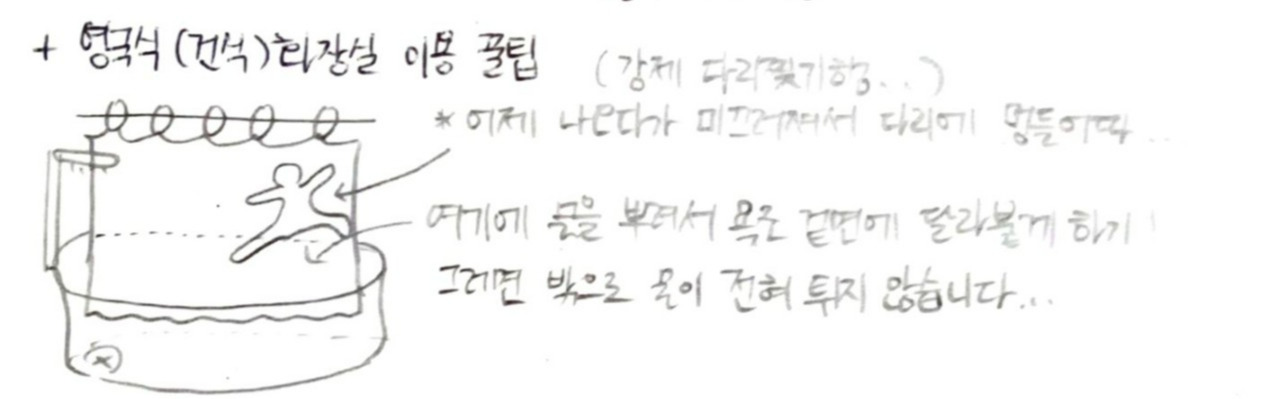 + 영국식(건식)화장실 이용 꿀팁
(강제 다리찢기행...)
* 어제 나온다가 미끄러져서 다리에 멍들어따..
여기에 물을 뿌려서 욕조 겉면에 달라붙게 하기!
그러면 밖으로 물이 전혀 튀지 않습니다...